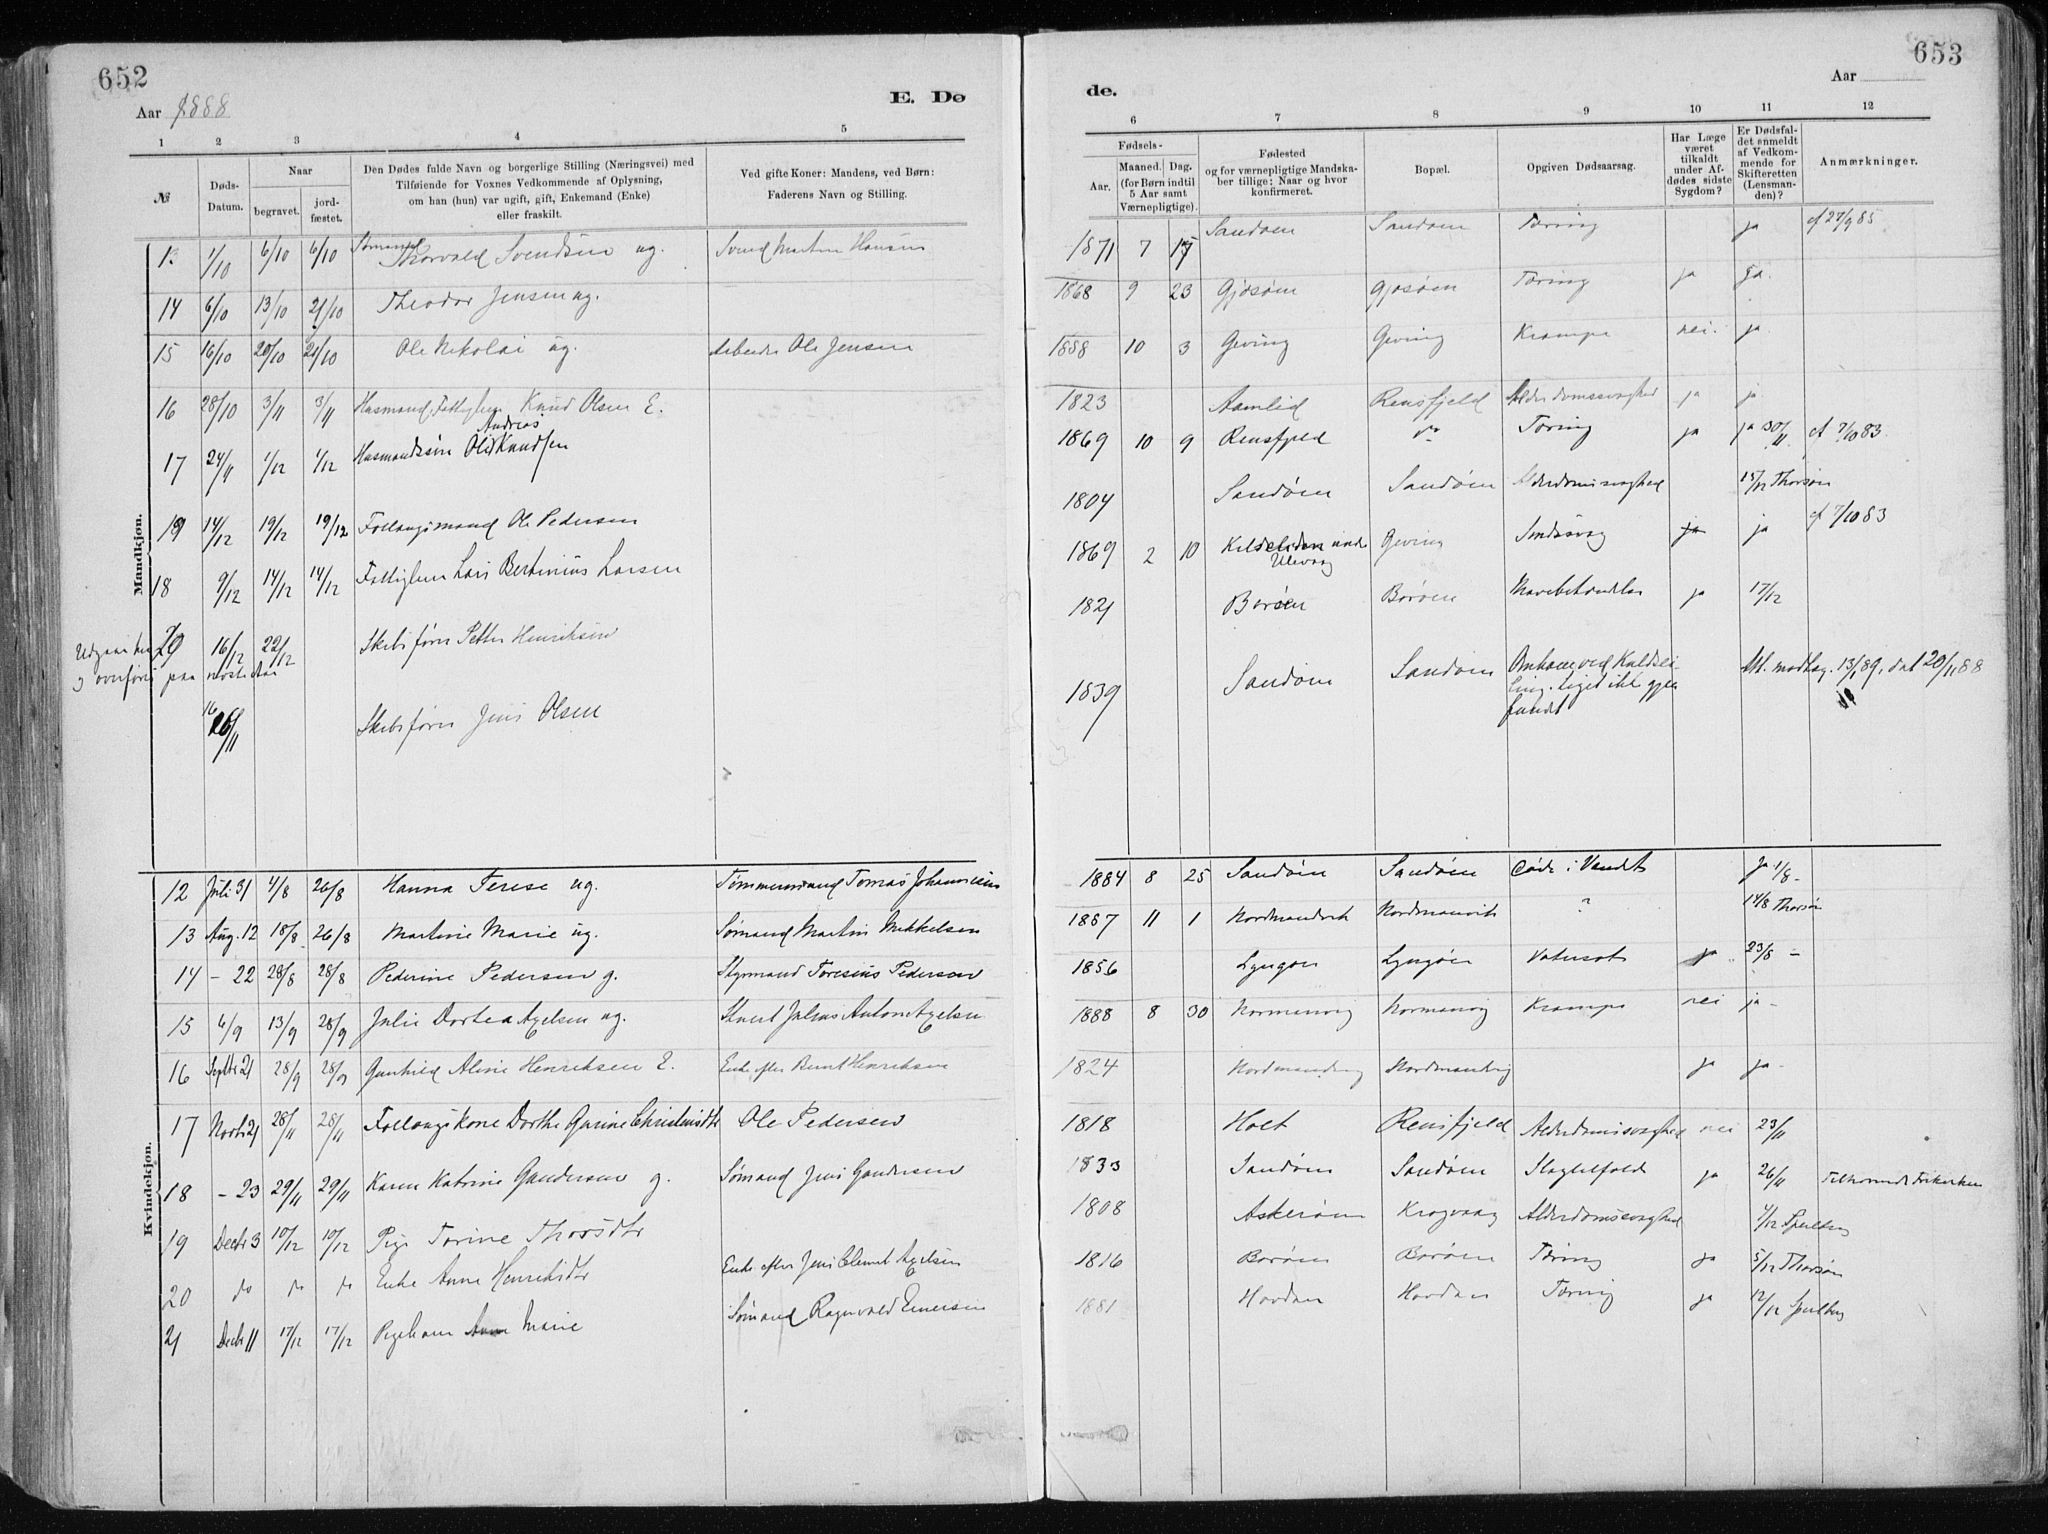 652
Aar 1888
E. Dø
1 2 3 4 5
№
Døds-
Datum.
Naar
begravet.
jord-
fæstet.
Den Dødes fulde Navn og borgerlige Stilling (Næringsvei) med
Tilføiende for Voxnes Vedkommende af Oplysning,
om han (hun) var ugift, gift, Enkemand (Enke)
eller fraskilt.
Ved gifte Koner: Mandens, ved Børn:
Faderens Navn og Stilling.
Mandkjøn.
13 1/10 6/10 6/10 Sømand Thorvald Svendsen ug. Svend Martin Hansen
14 6/10 13/10 21/10 Theodor Jensen ug.
15 16/10 20/10 21/10 Ole Nikolai ug. Arbeider Ole Jensen
16 28/10 3/11 3/11 Husmand, Fattiglem Knud Olsen E.
Andreas
17 24/11 1/12 1/12 Husmandssøn Ole Knudsen
19 14/12 19/12 19/12 Follaugsmand Ole Pedersen
18 9/12 14/12 14/12 Fattiglem Lars Bertinius Larsen
20 16/12 22/12 Skibsfører Petter Henriksen
paa næste Aar
16/11 Skibsfører Jens Olsen
Kvindekjøn.
12 Juli 31 4/8 26/8 Hanna Terese ug. Tømmermand Tomas Johannesen
13 Aug. 12 18/8 26/8 Martine Marie ug. Sømand Martin Mikkelsen
14 - 22 28/8 28/8 Pederine Pedersen g. Styrmand Toresius Pedersen
15 6/9 13/9 28/9 Julie Dortea Axelsen ug. Stuert Julius Anton Axelsen
16 Septbr 21 28/9 28/9 Gunhild Aline Henriksen E. Enke efter Bernt Henriksen
17 Novbr 21 28/11 28/11 Follaugskone Dorthe Gurine Christensdtr Ole Pedersen
18 - 23 29/11 29/11 Karen Katrine Gundersen g. Sømand Jens Gundersen
19 Decbr 3 10/12 10/12 Pige Torine Thorsdtr
20 do do do Enke Anne Henriksdtr Enke efter Jens Clemet Axelsen
21 Decbr 11 17/12 17/12 Pigebarn Anne Marie Sømand Ragnvald Einersen
653
Aar
de.
6 7 8 9 10 11 12
Fødsels-
Aar.
Maaned. Dag.
(for Børn indtil
5 Aar samt
Værnepligtige).
Fødested
og for værnepligtige Mandska-
ber tillige: Naar og hvor
konfirmeret.
Bopæl.
Opgiven Dødsaarsag.
Har Læge
været
tilkaldt
under Af-
dødes sidste
Sygdom?
Er Dødsfal-
det anmeldt
af Vedkom-
mende for
Skifteretten
(Lensman-
den)?
Anmærkninger.
1871 7 17 Sandøen Sandøen Tæring ja cf 27/9 85
1868 9 23 Gjøsøen Gjøsøen Tæring ja ja.
1888 10 3 Geving Geving Krampe nei. ja.
1823 Aamlid Rensfjeld Alderdomssvaghed ja ja.
1869 10 9 Rensfjeld do Tæring ja ja 30/11 cf 7/10 83.
1804 Sandøen Sandøen Alderdomssvaghed 15/12 Thorsøn
1869 2 10 Kilselidan under
Ulevaag Geving Sindssvag ja ja cf 7/10 83
1821 Borøen Borøen Mavebetændelse ja 17/12
1839 Sandøen Sandøen Omkom ved Kuldsei
ling. Liget ikke gjen
fundt Att. modtag. 13/1 89, dat 20/11 88
1884 8 25 Sandøen Sandøen Døde i Vandet ja 1/8 -
1887 11 1 Nordmandvik Nordmanvik ? 14/8 Thorsøn
1856 Lyngøer Lyngøer Vatersot ja 23/8 -
1888 8 30 Normanvig Normanvig Krampe nei ja -
1824 Nordmandvig Nordmandvig ja ja -
1818 Holt Rensfjeld Alderdomssvaghed nei 23/11
1833 Sandøen Sandøen Slagtilfælde ja 26/11 Tilhørende Frikirken
1808 Askerøen Krogvaag Alderdomssvaghed 4/12 Sperlberg
1816 Borøen Borøen Tæring ja 5/12 Thorsøn
1881 Hovdan Hovdan Tæring ja 12/12 Sperlberg